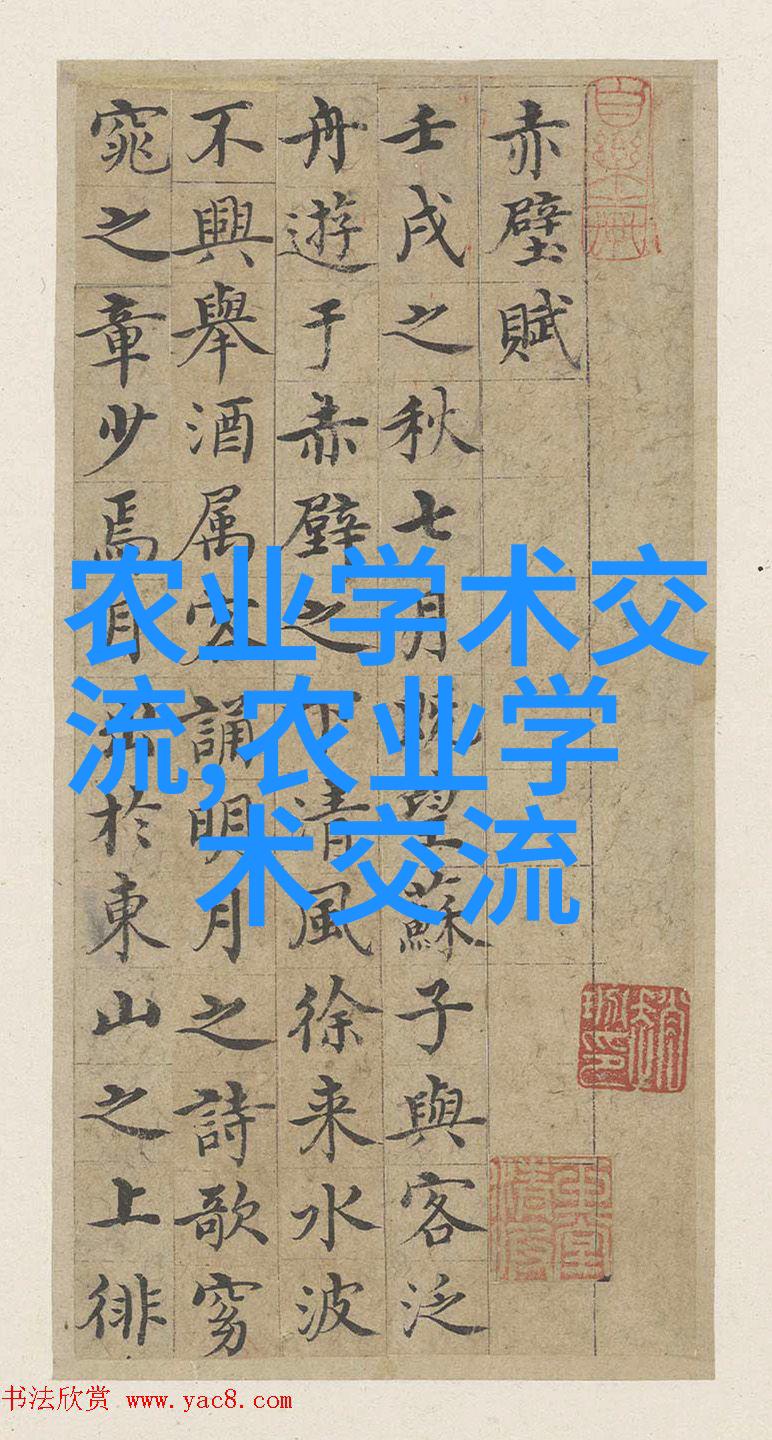 赤壁賦
壬戌之秋七月既望蘇子與客泛
舟遊于赤壁之下清風徐来水波
不興舉酒属客誦明月之詩歌窈
窕之章少焉月出於東山之上徘
农业学术交
流,农业学
术交流
书法欣赏 www.yac8.com